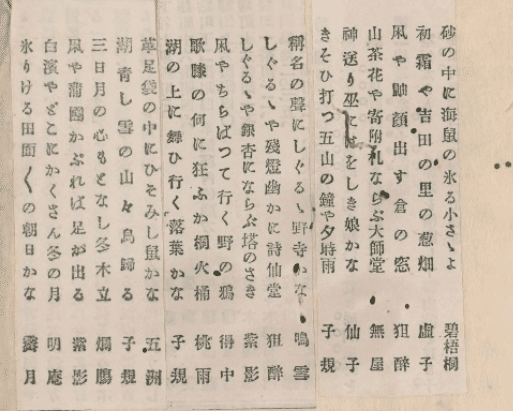 砂の中に海鼠の氷る小さゝよ 碧梧桐
初霜や吉田の里の葱畑 虚子
凩や鼬顔出す倉の窓 狙醉
山茶花や寄附札ならぶ大師堂 無屋
神送り巫にはをしき娘かな 仙子
きそひ打つ五山の鐘や夕時雨 子規
稱名の聲にしぐるゝ野寺かな 鳴雪
しぐるゝや殘燈幽かに詩仙堂 狙醉
しぐるゝや銀杏にならぶ塔のさき 紫影
凩やちらばつて行く野の鴉 得中
歌膝の何に狂ふか桐火桶 桃雨
湖の上に舞ひ行く落葉かな 子規
革足袋の中にひそみし鼠かな 五洲
湖青し雪の山々鳥歸る 子規
三日月の心もとなし冬木立
凩や蒲團かぶれば足が出る 紫影
白濱やどこにかくさん冬の月 明庵
氷りける田面〱の朝日かな 霽月